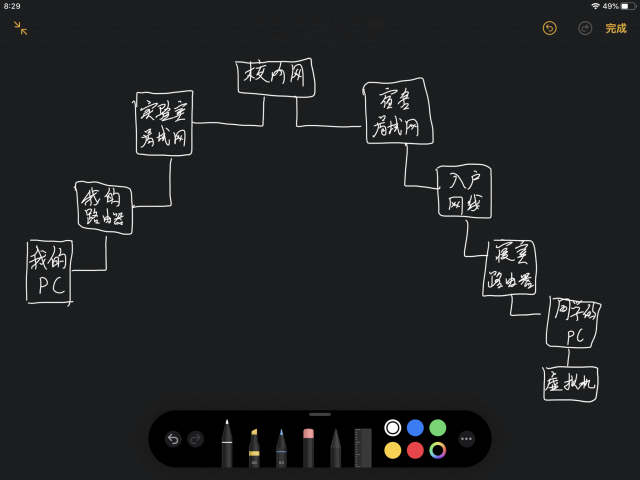 8:29
49%
完成
校内网
实验室
局域网
宿舍
局域网
我的
路由器
入户
网线
我的
PC
寝室
路由器
同学的
PC
虚拟机